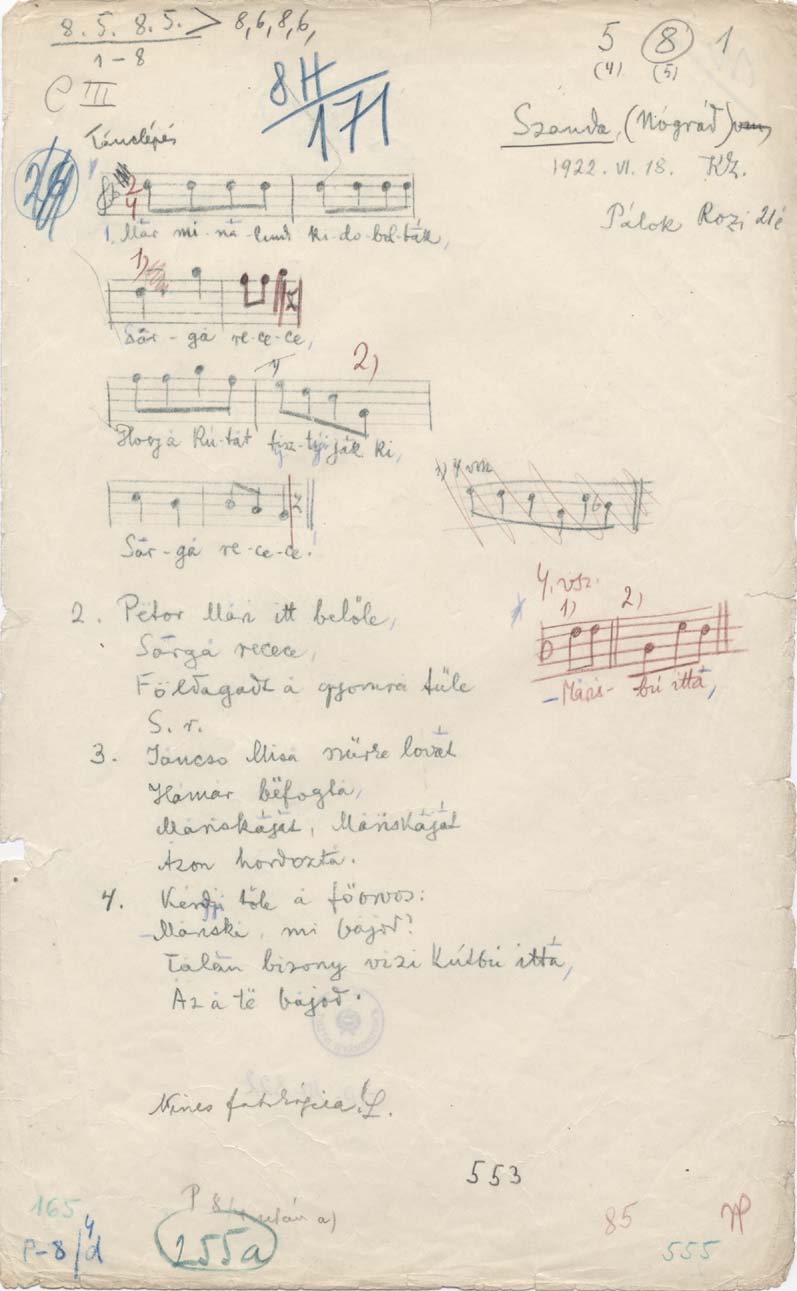 8. 5. 8. 5. > 8, 6, 8, 6,
1-8
C III
8H
171
5 8 1
(4) (5)
Szanda, (Nógrád)
1922. VI. 18. Kz.
Pálok Rozi 21 é
Tánclépés
26
2
4
1. Már mi-ná-lunk ki-do-bol-ták,
1)
Sár-gá re-ce-ce,
2)
Hogá Rú-tát tisz-tyi-ják ki,
Sár-gá re-ce-ce.
4 vsz
4. vsz.
1) 2)
Máris- bú ittá,
2. Pétor Mári itt belőle,
Sárgá recece,
Földagadt á gyomra tűle
S. r.
3. Jáncsó Misa szürke lovát
Hámár béfogtá,
Máriskáját, Máriskáját
Azon hordoztá.
4. Kérdji tőle á főorvos:
Máriska, mi bájod?
Tálán bizony vizi Kútbú ittá,
Áz á të bájod.
553
165
P-8/d
4
P 8
után a)
255a
85
555